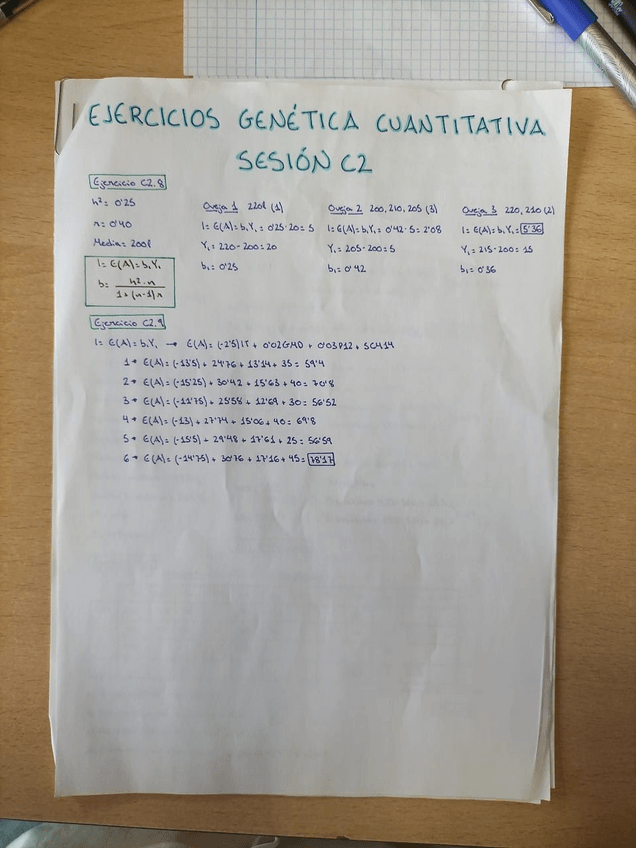 EJERCICIOS GENÉTICA CUANTITATIVA
SESIÓN C2
Ejercicio C2.8
h²= 0'25
r= 0'40
Media= 200l
I= E(A)= b₁Y₁
b= h²·n / 1+(n-1)r
Oveja 1 220l (1)
I= E(A)= b₁Y₁= 0'25·20= 5
Y₁= 220-200= 20
b₁= 0'25
Oveja 2 200, 210, 205 (3)
I= E(A)= b₁Y₁= 0'42·5= 2'08
Y₁= 205-200= 5
b₁= 0'42
Oveja 3 220, 210 (2)
I= E(A)= b₁Y₁= 5'36
Y₁= 215-200= 15
b₁= 0'36
Ejercicio C2.9
I= E(A)= b₁Y₁ → E(A)= (-2'5)IT + 0'02GMD + 0'03P12 + 5CM14
1→ E(A)= (-13'5) + 24'76 + 13'14 + 35= 59'4
2→ E(A)= (-15'25) + 30'42 + 15'63 + 40= 70'8
3→ E(A)= (-11'75) + 25'58 + 12'69 + 30= 56'52
4→ E(A)= (-13) + 27'74 + 15'06 + 40= 69'8
5→ E(A)= (-15'5) + 29'48 + 17'61 + 25= 56'59
6→ E(A)= (-14'75) + 30'76 + 17'16 + 45= 78'17